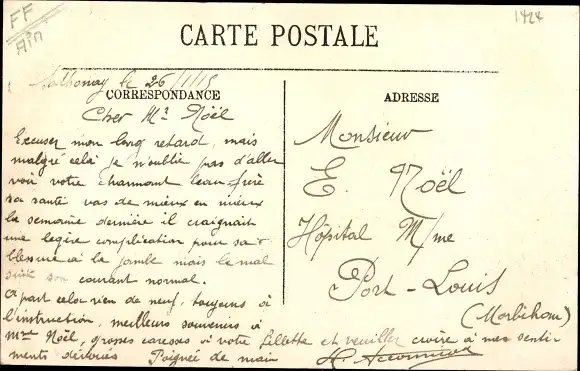 FF
Ain
1424
CARTE POSTALE
Sathonay le 26/1/15
CORRESPONDANCE
ADRESSE
Cher Mr Noël
Excuser mon long retard, mais
malgré cela je n'oublie pas d'aller
voir votre charmant beau frère
sa santé vas de mieux en mieux
la semaine dernière il craignait
une legère complication pour sa
blessure à la jambe mais le mal
suit son courant normal.
A part cela rien de neuf, toujours à
l'instruction, meilleurs souvenirs à
Mme Noël, grosses caresses à votre fillette et veuillez croire à mes senti-
ments dévoués Poignée de main
Monsieur
E. Noël
Hôpital M/me
Port-Louis
(Morbihan)